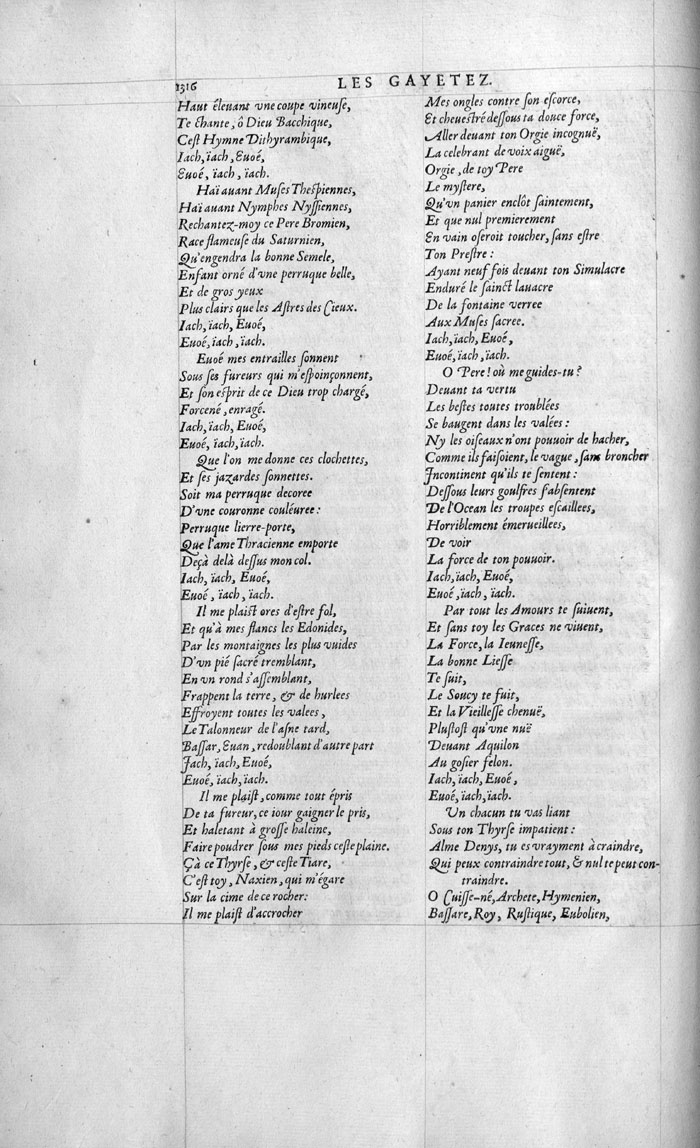 1316
LES GAYETEZ.
Haut éleuant vne coupe vineuse,
Te chante, ô Dieu Bacchique,
Cest Hymne Dithyrambique,
Iach, ïach, Euoé,
Euoé, ïach, ïach.
Haï auant Muses Thespiennes,
Haï auant Nymphes Nyssiennes,
Rechantez-moy ce Pere Bromien,
Race flameuse du Saturnien,
Qu'engendra la bonne Semele,
Enfant orné d'vne perruque belle,
Et de gros yeux
Plus clairs que les Astres des Cieux.
Iach, ïach, Euoé,
Euoé, ïach, ïach.
Euoé mes entrailles sonnent
Sous ses fureurs qui m'espoinçonnent,
Et son esprit de ce Dieu trop chargé,
Forcené, enragé.
Iach, ïach, Euoé,
Euoé, ïach, ïach.
Que l'on me donne ces clochettes,
Et ses jazardes sonnettes.
Soit ma perruque decoree
D'vne couronne couléuree:
Perruque lierre-porte,
Que l'ame Thracienne emporte
Deçà delà dessus mon col.
Iach, ïach, Euoé,
Euoé, ïach, ïach.
Il me plaist ores d'estre fol,
Et qu'à mes flancs les Edonides,
Par les montaignes les plus vuides
D'vn pié sacré tremblant,
En vn rond s'assemblant,
Frappent la terre, & de hurlees
Effroyent toutes les valees,
Le Talonneur de l'asne tard,
Bassar, Euan, redoublant d'autre part
Jach, ïach, Euoé,
Euoé, ïach, ïach.
Il me plaist, comme tout épris
De ta fureur, ce iour gaigner le pris,
Et haletant à grosse haleine,
Faire poudrer sous mes pieds ceste plaine.
Çà ce Thyrse, & ceste Tiare,
C'est toy, Naxien, qui m'égare
Sur la cime de ce rocher:
Il me plaist d'accrocher
Mes ongles contre son escorce,
Et cheuestré dessous ta douce force,
Aller deuant ton Orgie incognuë,
La celebrant de voix aiguë,
Orgie, de toy Pere
Le mystere,
Qu'vn panier enclôt saintement,
Et que nul premierement
En vain oseroit toucher, sans estre
Ton Prestre:
Ayant neuf fois deuant ton Simulacre
Enduré le sainct lauacre
De la fontaine verree
Aux Muses sacree.
Iach, ïach, Euoé,
Euoé, ïach, ïach.
O Pere! où me guides-tu?
Deuant ta vertu
Les bestes toutes troublées
Se baugent dans les valées:
Ny les oiseaux n'ont pouuoir de hacher,
Comme ils faisoient, le vague, sans broncher
Incontinent qu'ils te sentent:
Dessous leurs goulfres s'absentent
De l'Ocean les troupes escaillees,
Horriblement émerueillees,
De voir
La force de ton pouuoir.
Iach, ïach, Euoé,
Euoé, ïach, ïach.
Par tout les Amours te suiuent,
Et sans toy les Graces ne viuent,
La Force, la Ieunesse,
La bonne Liesse
Te suit,
Le Soucy te fuit,
Et la Vieillesse chenuë,
Plustost qu'vne nuë
Deuant Aquilon
Au gosier felon.
Iach, ïach, Euoé,
Euoé, ïach, ïach.
Vn chacun tu vas liant
Sous ton Thyrse impatient:
Alme Denys, tu es vrayment à craindre,
Qui peux contraindre tout, & nul te peut con-
traindre.
O Cuisse-né, Archete, Hymenien,
Bassare, Roy, Rustique, Eubolien,